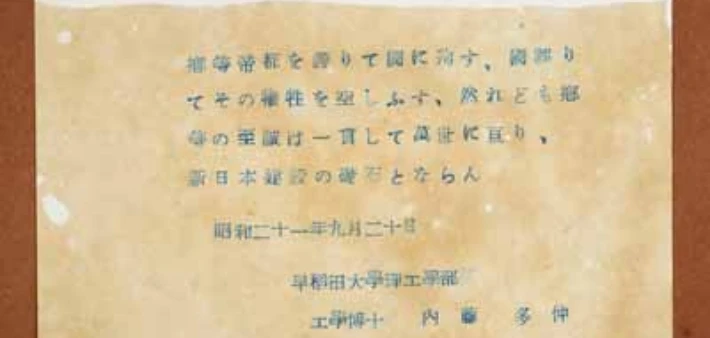 卿等帝都を護りて国に殉す、國敗り
てその犠牲を空しふす、然れども卿
等の至誠は一貫して萬世に亘り、
新日本建設の礎石とならん
昭和二十一年九月二十日
早稲田大學理工學部
工學博士 内藤 多仲